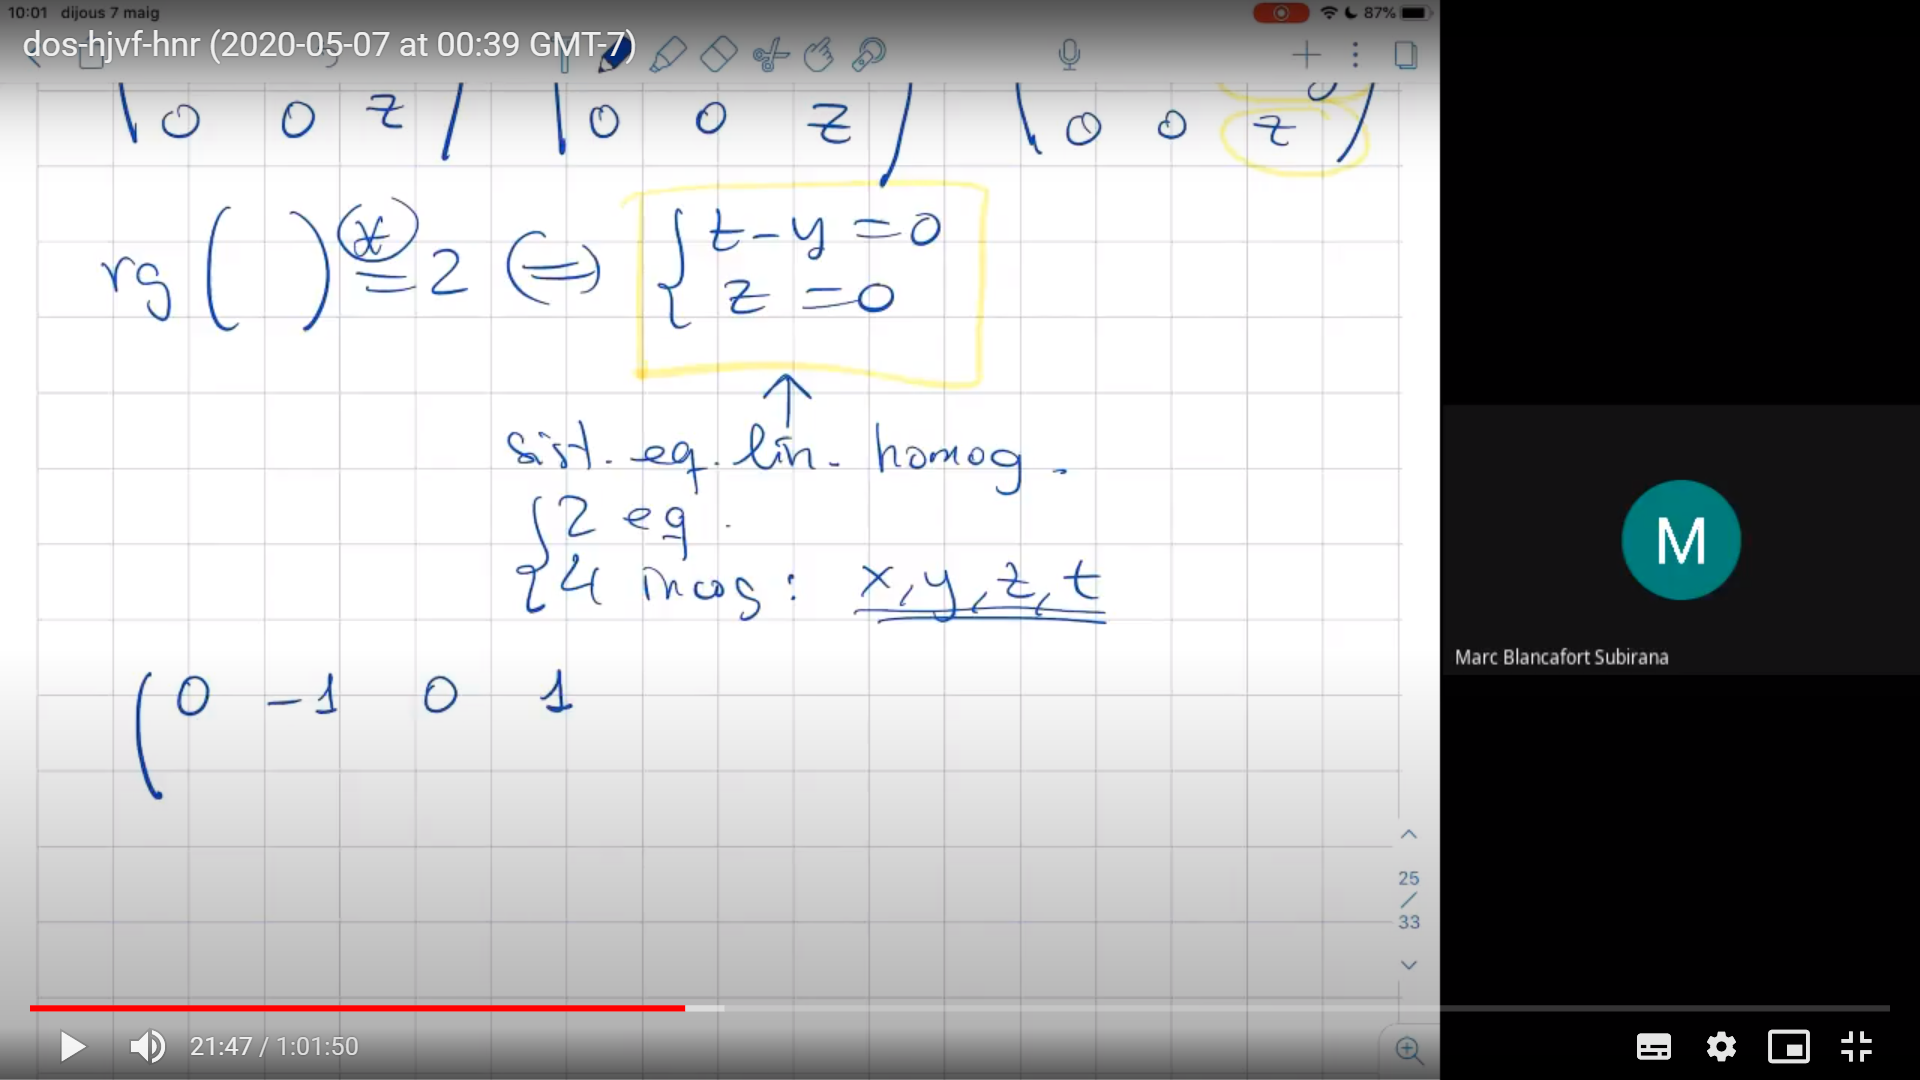 10:01 dijous 7 maig 87%
dos-hjvf-hnr (2020-05-07 at 00:39 GMT-7)
0 0 z 0 0 z 0 0 z
rg ( ) (*) = 2 (=) { t - y = 0
z = 0
↑
sist. eq. lin. homog.
{ 2 eq.
4 incog: x, y, z, t
( 0 -1 0 1
M
Marc Blancafort Subirana
25
/
33
21:47 / 1:01:50